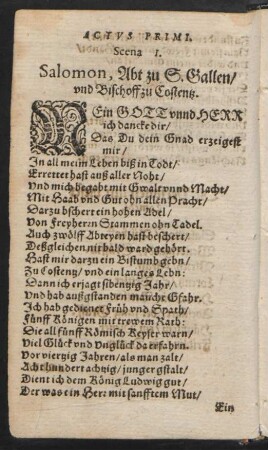 ACTVS PRIMI.
Scena I.
Salomon, Abt zu S. Gallen/
vnd Bischoff zu Costentz.
MEin GOTT vnnd HERR
ich dancke dir/
Das Du dein Gnad erzeigest
mir/
In all meim Leben biß in Todt/
Errettet hast auß aller Noht/
Vnd mich begabt mit Gwalt vnnd Macht/
Mit Haab vnd Gut ohn allen Pracht/
Darzu bschert ein hohen Adel/
Von Freyherrn Stammen ohn Tadel.
Auch zwölff Abteyen hast beschert/
Deßgleichen nit bald ward gehört.
Hast mir darzu ein Bistumb gebn/
Zu Costentz/ vnd ein langes Lebn:
Dann ich erjagt sibentzig Jahr/
Vnd hab außgstanden manche Gfahr.
Ich hab gedienet Früh vnd Spath/
Fünff Königen mit trewem Rath:
Die all fünff Römisch Keyser warn/
Viel Glück vnd Vnglück da erfahrn.
Vor viertzig Jahren/ als man zalt/
Acht hundert achtzig/ junger gstalt/
Dient ich dem König Ludwig gut/
Der was ein Herr mit sanfftem Mut/
Ein